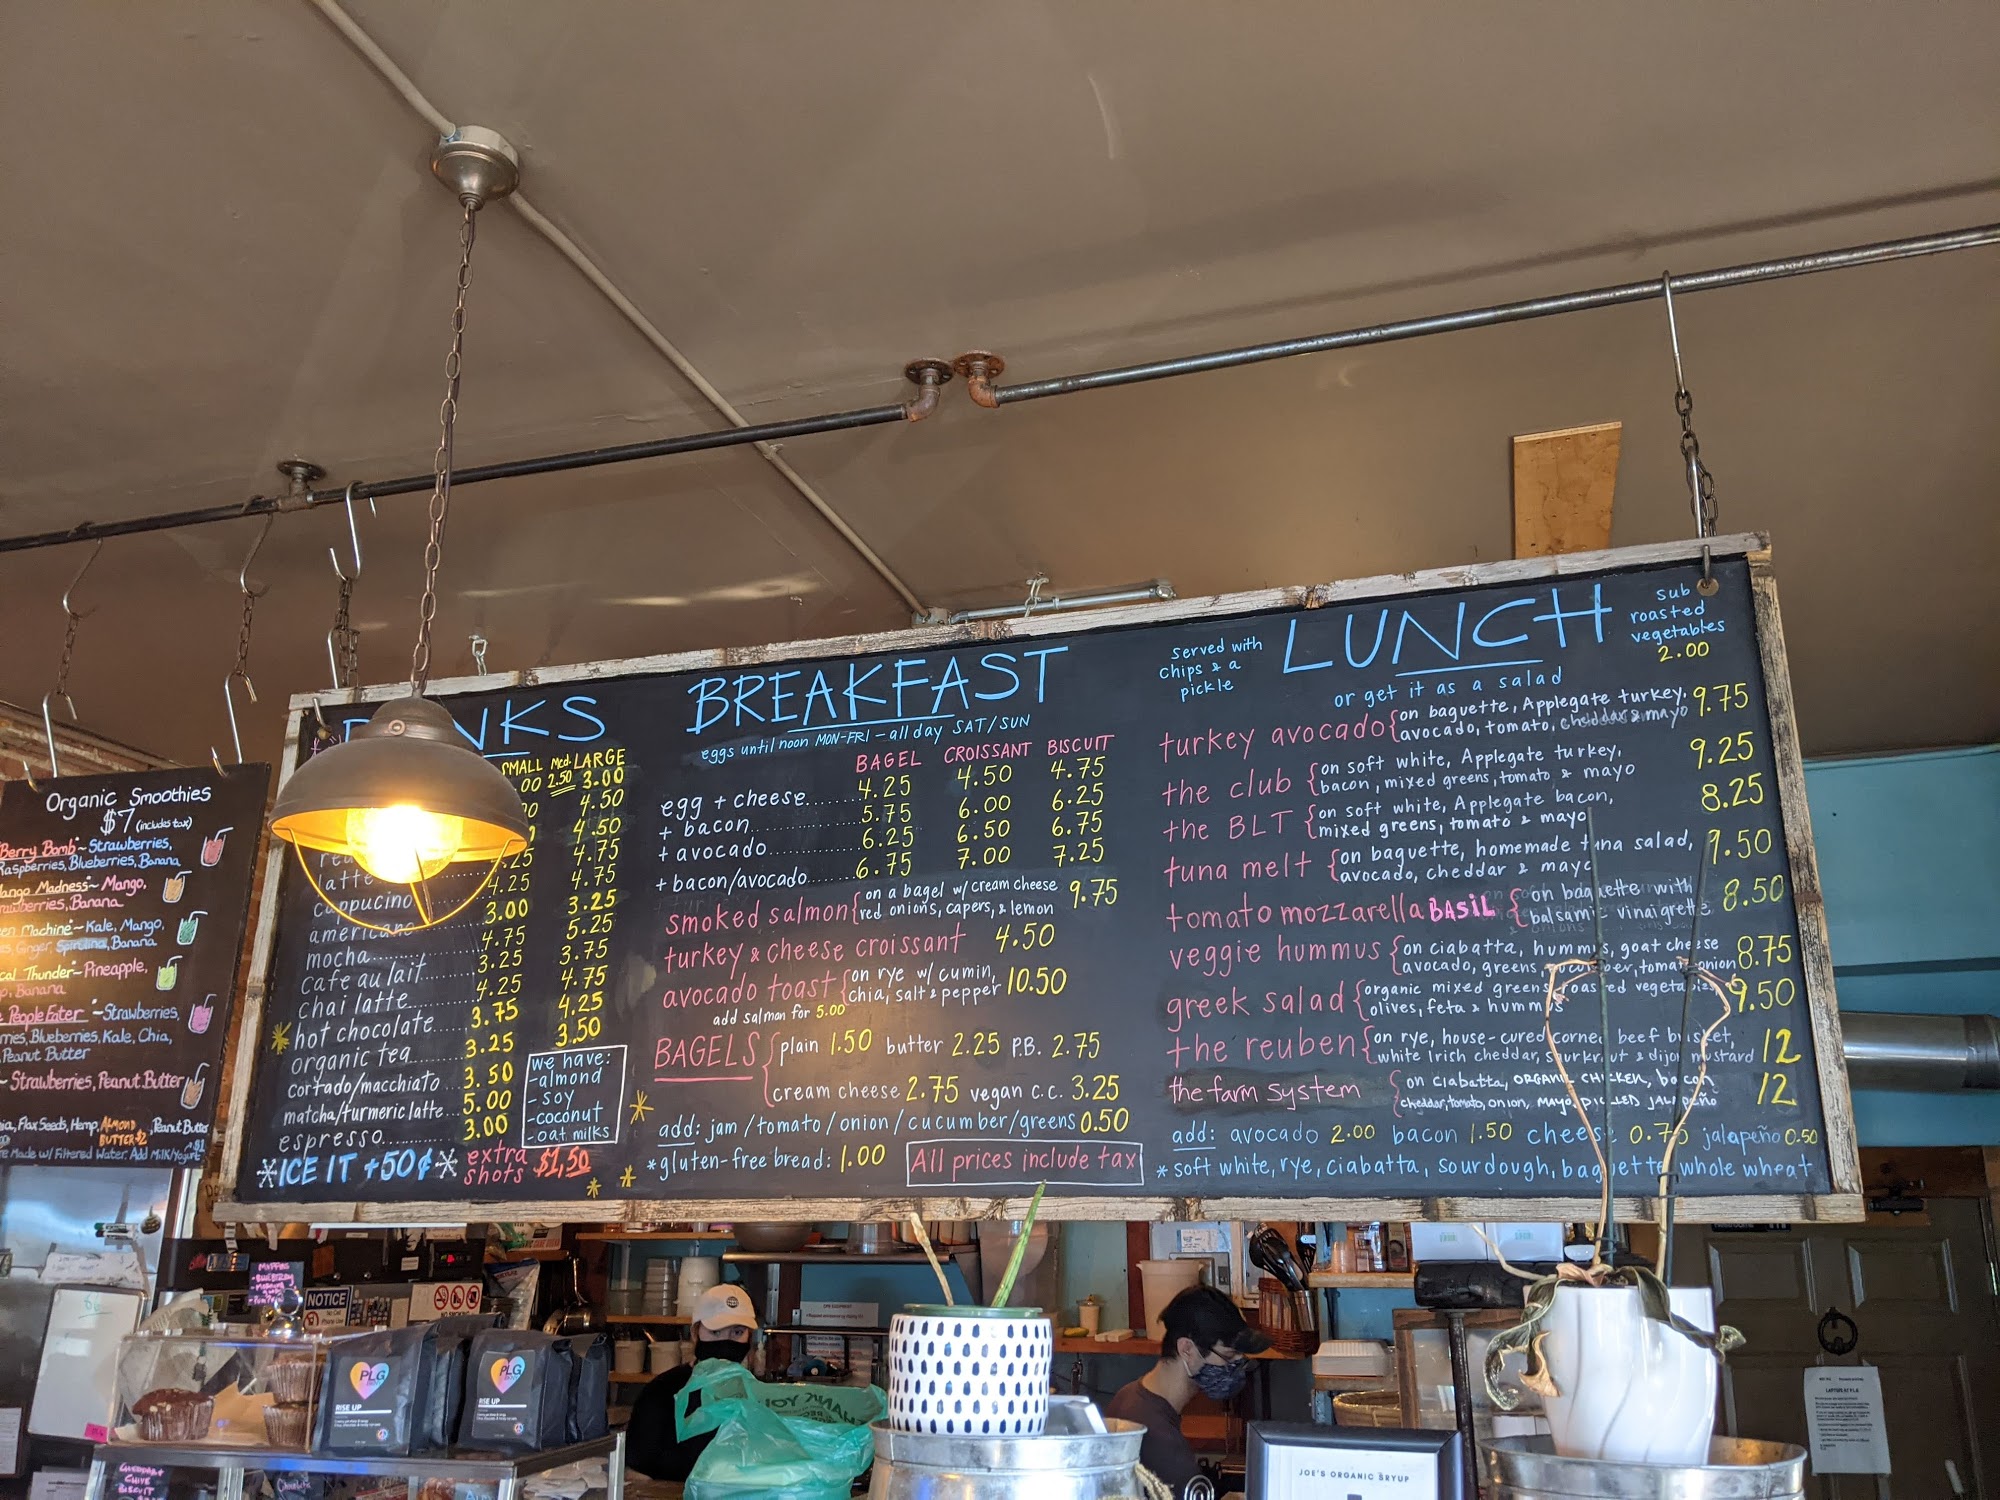 Organic Smoothies
$7 (includes tax)
Berry Bomb ~ Strawberries,
Raspberries, Blueberries, Banana
Mango Madness ~ Mango,
Strawberries, Banana
Machine ~ Kale, Mango,
Ginger, Spirulina, Banana
Thunder ~ Pineapple,
Banana
People Eater ~ Strawberries,
Blueberries, Kale, Chia,
Peanut Butter
~ Strawberries, Peanut Butter
Flax Seeds, Hemp, ALMOND BUTTER $2, Peanut Butter
Made w/ Filtered Water. Add Milk/Yogurt $1
NKS
SMALL Med. LARGE
.00 2.50 3.00
4.50
4.50
4.75
latte 4.25 4.75
cappuccino 3.00 3.25
americano 4.75 5.25
mocha 3.25 3.75
cafe au lait 4.25 4.75
chai latte 3.75 4.25
hot chocolate 3.25 3.50
organic tea 3.50
cortado/macchiato 5.00
matcha/turmeric latte 3.00
espresso
we have:
-almond
- soy
-coconut
-oat milks
ICE IT +50¢
extra shots $1.50
BREAKFAST
eggs until noon MON-FRI - all day SAT/SUN
BAGEL CROISSANT BISCUIT
egg + cheese 4.25 4.50 4.75
+ bacon 5.75 6.00 6.25
+ avocado 6.25 6.50 6.75
+ bacon/avocado 6.75 7.00 7.25
smoked salmon { on a bagel w/ cream cheese 9.75
red onions, capers, & lemon
turkey & cheese croissant 4.50
avocado toast { on rye w/ cumin, 10.50
chia, salt & pepper
add salmon for 5.00
BAGELS { plain 1.50 butter 2.25 P.B. 2.75
cream cheese 2.75 vegan c.c. 3.25
add: jam/tomato/onion/cucumber/greens 0.50
*gluten-free bread: 1.00
All prices include tax
served with
chips & a
pickle
LUNCH
or get it as a salad
sub
roasted
vegetables
2.00
turkey avocado { on baguette, Applegate turkey, 9.75
avocado, tomato, cheddar & mayo
the club { on soft white, Applegate turkey, 9.25
bacon, mixed greens, tomato & mayo
the BLT { on soft white, Applegate bacon, 8.25
mixed greens, tomato & mayo
tuna melt { on baguette, homemade tuna salad, 9.50
avocado, cheddar & mayo
tomato mozzarella BASIL { on baguette with 8.50
balsamic vinaigrette
veggie hummus { on ciabatta, hummus, goat cheese 8.75
avocado, greens, cucumber, tomato, onion
greek salad { organic mixed greens, roasted vegetables, 9.50
olives, feta & hummus
the reuben { on rye, house-cured corned beef brisket, 12
white Irish cheddar, sourkraut & dijon mustard
the farm system { on ciabatta, ORGANIC CHICKEN, bacon 12
cheddar, tomato, onion, MAYO, PICKLED JALAPEÑO
add: avocado 2.00 bacon 1.50 cheese 0.75 jalapeño 0.50
*soft white, rye, ciabatta, sourdough, baguette, whole wheat
MUFFINS
NOTICE
PLG
RISE UP
PLG
RISE UP
CHEDDAR +
CHIVE
BISCUIT
THANK YOU
JOE'S ORGANIC BRYUP